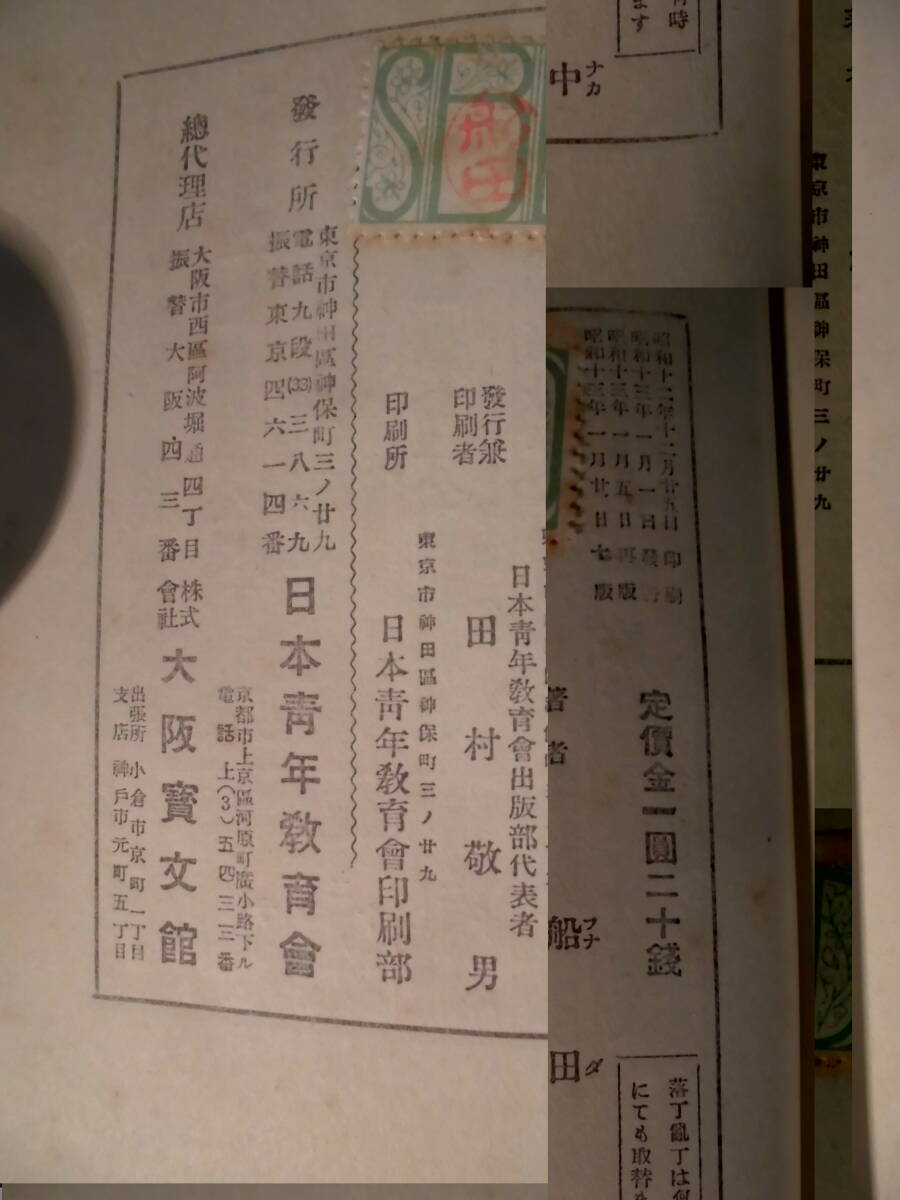 何時
ます
ナカ
中
東京市神田區神保町三ノ廿九
昭和十二年十二月廿五日 印刷
昭和十三年一月一日 發行
昭和十三年一月五日 再版
昭和十三年一月廿日 七版
定價金一圓二十錢
落丁亂丁は何
にても取替
著作者
フナ
船
ダ
田
船田
發行兼
印刷者
日本靑年敎育會出版部代表者
田村敬男
東京市神田區神保町三ノ廿九
印刷所
日本靑年敎育會印刷部
發行所
東京市神田區神保町三ノ廿九
電話九段(33)三八六九
振替東京四六一四番
日本靑年敎育會
京都市上京區河原町廣小路下ル
電話 上(3)五四三三番
總代理店
大阪市西區阿波堀通四丁目
振替大阪四三番
株式
會社
大阪寶文館
出張所 小倉市京町一丁目
支店 神戶市元町五丁目